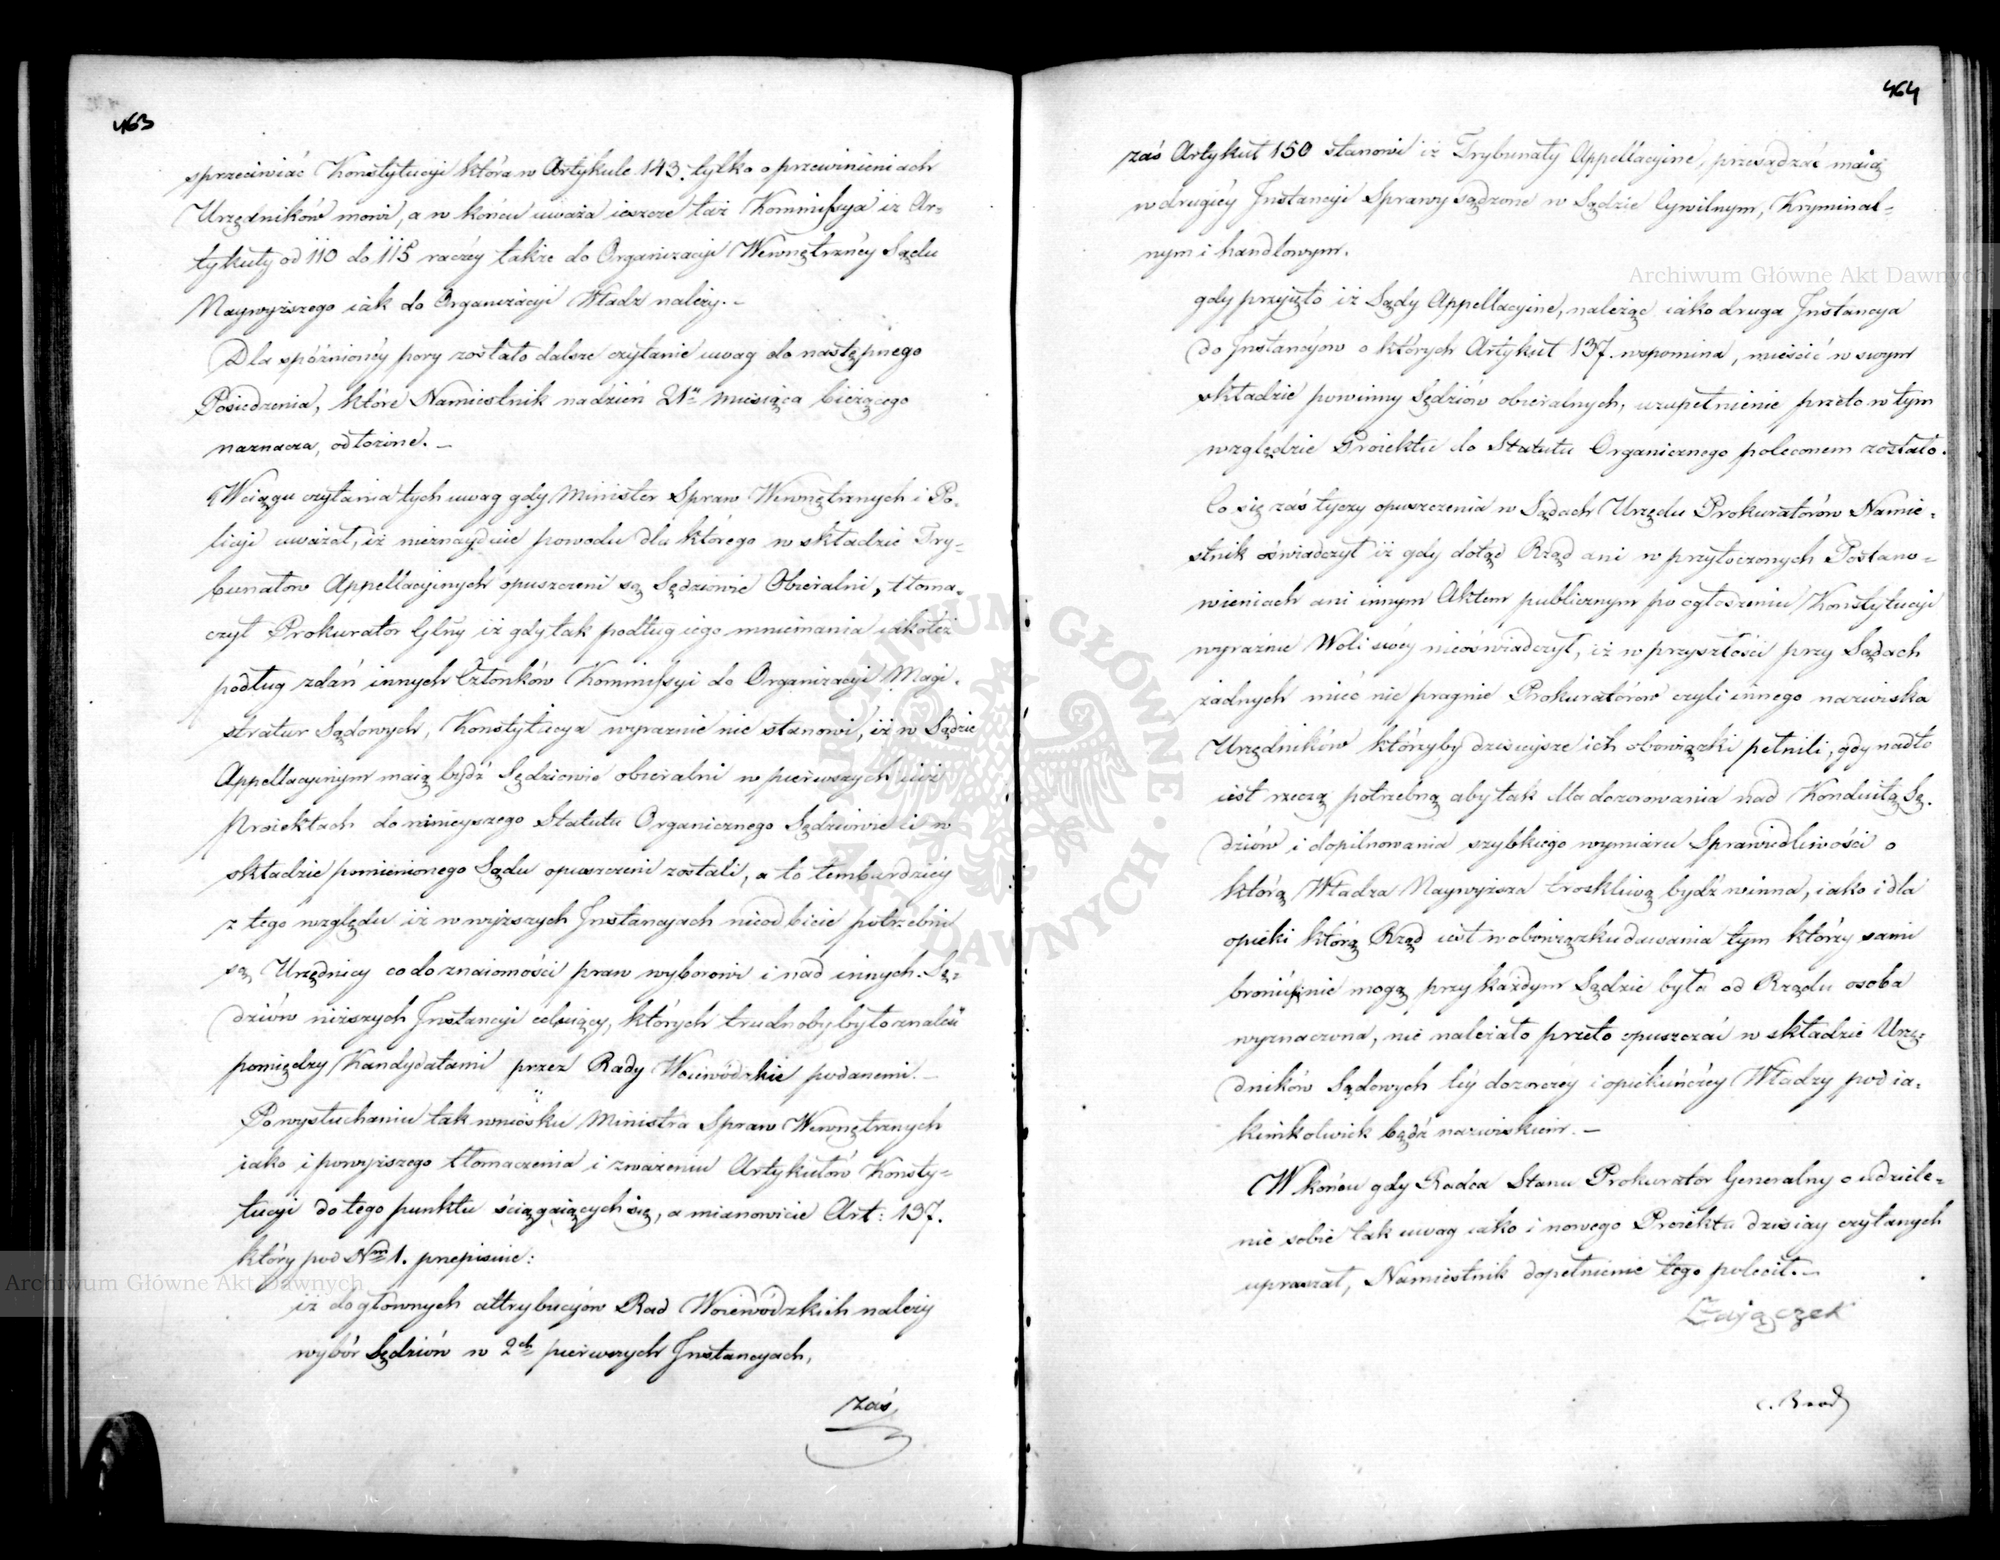 463
sprzeciwiać Konstytucyi która w Artykule 143. tylko o przewinieniach
Urzędników mowi, a w końcu uważa ieszcze taż Kommissya iż Ar-
tykuły od 110 do 115 raczey także do Organizacyi Wewnętrznéy Sądu
Naywyższego iak do Organizacyi Władz należy. –
Dla spóźnionéy pory zostało dalsze czytanie uwag do następnego
Posiedzenia, które Namiestnik na dzień 21. miesiąca bieżącego
naznacza, odłożone. –
W ciągu czytania tych uwag gdy Minister Spraw Wewnętrznych i Po-
licyi uważał, iż nieznayduie powodu dla którego w składzie Try-
bunałow Appellacyinych opuszczeni są Sędziowie Obieralni, tłoma-
czył Prokurator Glny iż gdy tak podług iego mniemania iakoteż
podług zdań innych Członków Kommissyi do Organizacyi Magi-
stratur Sądowych, Konstytucya wyraznie nie stanowi, iż w Sądzie
Appellacyinym maią bydź Sędziowie obieralni w pierwszych iuż
Proiektach do ninieyszego Statutu Organicznego Sędziowie ci w
składzie pomienionego Sądu opuszczeni zostali, a to tembardziéy
z tego względu iż w wyższych Instancyach nieodbicie potrzebni
są Urzędnicy co do znaiomości praw wyborowi i nad innych Sę-
dziów niższych Instancyi celuiący, których trudnoby było znaleść
pomiędzy Kandydatami przez Rady Woiewódzkie podanemi. –
Po wysłuchaniu tak wniosku Ministra Spraw Wewnętrznych
iako i powyższego tłomaczenia i zważeniu Artykułów Konsty-
tucyi do tego punktu ściągaiących się, a mianowicie Art: 137.
który pod Nm 1. przepisuie:
iż do głównych attrybucyów Rad Woiewódzkich należy
wybór Sędziów w 2ch pierwszych Instancyach,
zaś
464
zaś Artykuł 150 stanowi iż Trybunały Appellacyine, przesądzać maią
w drugiéy Instancyi Sprawy sądzone w Sądzie Cywilnym, Kryminal-
nym i handlowym.
gdy przyięto iż Sądy Appellacyine, należąc iako druga Instancya
do Instancyów o których Artykuł 137. wspomina, mieścić w swym
składzie powinny Sędziów obieralnych, uzupełnienie przeto w tym
względzie Proiektu do Statutu Organicznego poleconem zostało.
Co się zaś tyczy opuszczenia w Sądach Urzędu Prokuratorów Namie-
stnik oświadczył iż gdy dotąd Rząd ani w przytoczonych Postano-
wieniach ani innym Aktem publicznym po ogłoszeniu Konstytucyi
wyraźnie Woli swéy nieoświadczył, iż w przyszłości przy Sądach
żadnych mieć nie pragnie Prokuratorow czyli innego nazwiska
Urzędników którzyby dzisieysze ich obowiązki pełnili, gdy nadto
iest rzeczą potrzebną aby tak dla dozorowania nad Konduitą Sę-
dziów i dopilnowania szybkiego wymiaru Sprawiedliwości o
którą Władza Naywyższa troskliwą bydź winna, iako i dla
opieki którą Rząd iest w obowiązku dawania tym którzy sami
bronić się nie mogą przy każdym Sądzie była od Rządu osoba
wyznaczona, nie należało przeto opuszczać w składzie Urzę-
dników Sądowych téy dozorczéy i opiekuńczéy Władzy pod ia-
kimkolwiek bądź nazwiskiem. –
W końcu gdy Radca Stanu Prokurator Generalny o udziele-
nie sobie tak uwag iako i nowego Proiektu dzisiay czytanych
upraszał, Namiestnik dopełnienie tego polecił. –
Zajączek
Archiwum Główne Akt Dawnych
Archiwum Główne Akt Dawnych
ARCHIWUM GŁÓWNE · AKT DAWNYCH ·